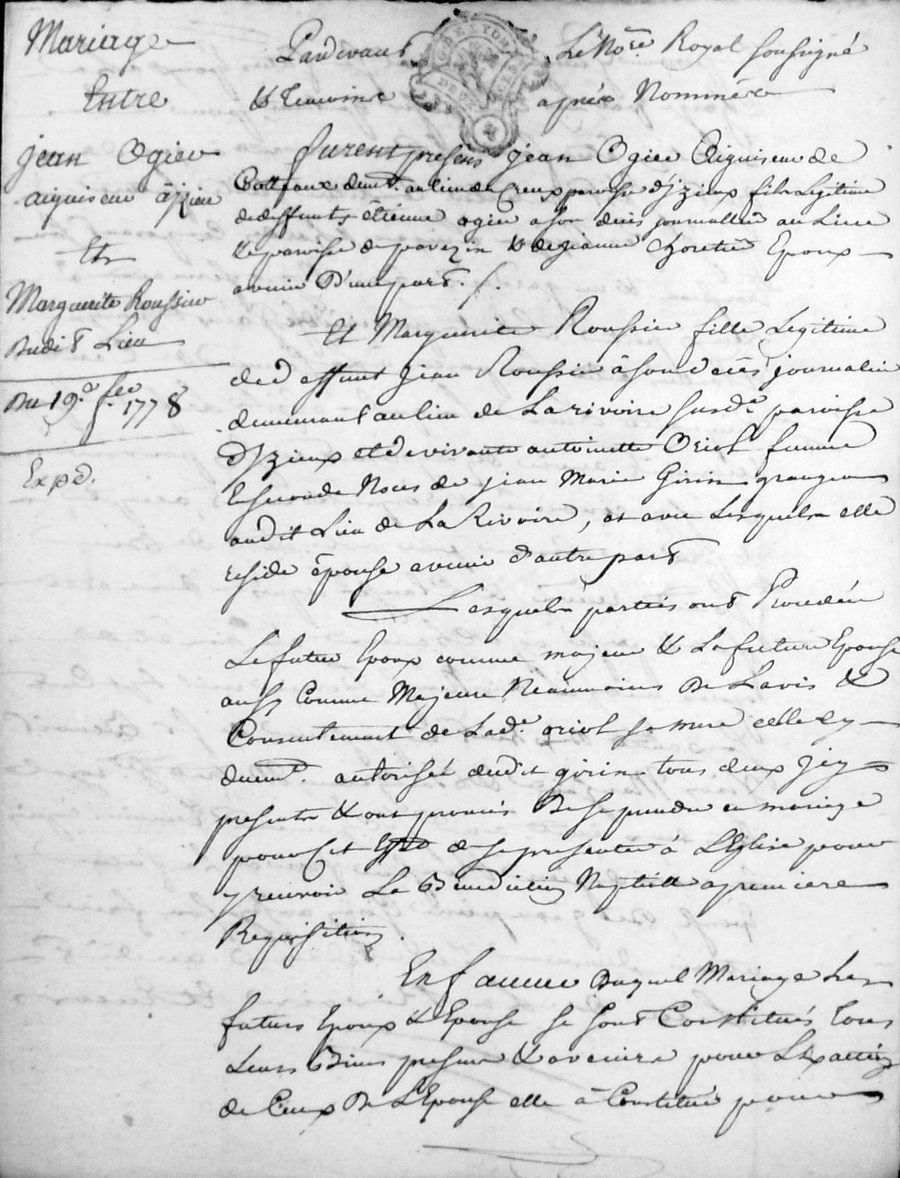 Mariage
Entre
jean Ogier
aiguiseur à jzieu
Et
Marguerite Roussier
Dudit Lieu
Du 19e. fer. 1778
Expd.
Pardevant Le Nore. Royal soussigné
& Temoins après Nommés
furent presens jean Ogier Aiguiseur de
Cotteaux demt. au lieu du Creux paroisse d'jzieux fils Legitime
de deffunts étienne ogier a son deces journallier au Lieu
& paroisse de pavezin & de jeanne Époux
avenir D'une part.
Et Marguerite Roussier fille Legitime
de deffunt jean Roussier à son décès journalier
demeurant au lieu de La rivoire susde. paroisse
d'jzieux et de vivante antoinette Oriol femme
En seconde Noces de jean Marie Girin granger
audit Lieu de La Rivoire, et avec Lesquels elle
reside épouse avenir d'autre part
Lesquels parties ont Procédé
Le futur Epoux comme majeur & La future Epouse
aussy Comme Majeure Neanmoins De L'avis &
Consentement de Lade. oriol sa mere celle cy
duemt. autorisée dudit girin tous deux jcy
presents & ont promis De se prendre en mariage
pour cet de se presenter à L'Eglise pour
y recevoir La Benediction Nuptialle a premiere
Requisition.
En faveur Duquel Mariage Les
futurs Epoux & Epouse se sont Constitués tous
Leurs Biens presens & avenirs pour L'exaction
de Ceux De L'Epouse elle à Constitué pour